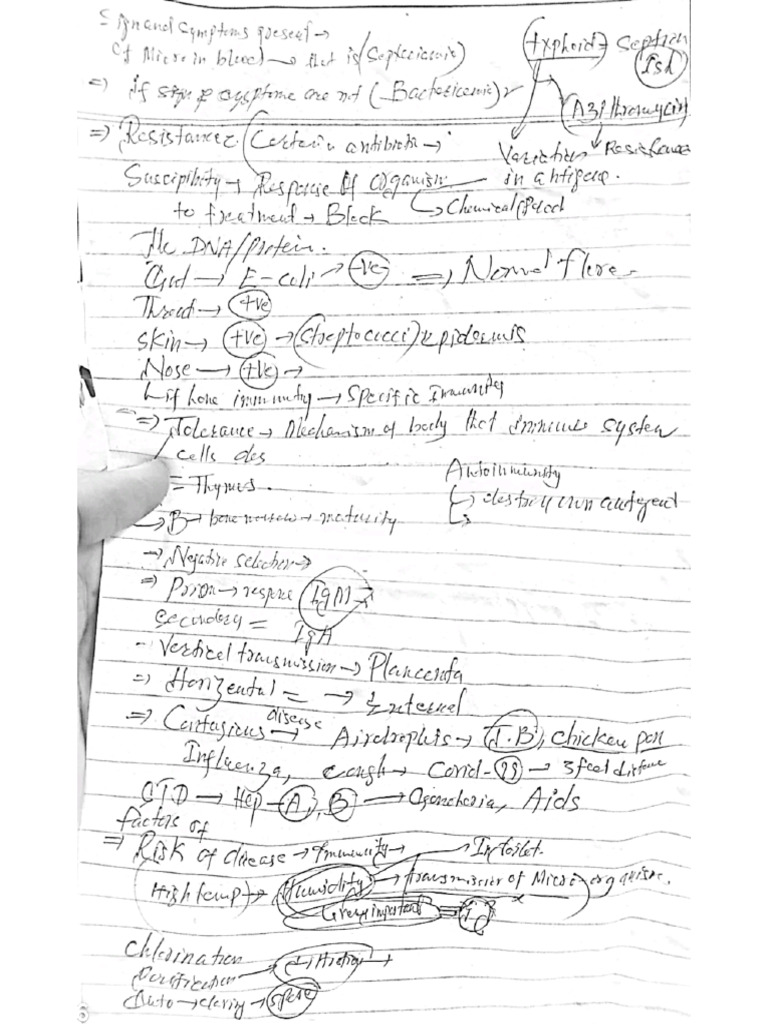 Sign and Symptoms present →
of Micro in blood → that is (Septicemic)
⇒ if sign & symptoms are not (Bacteriemic)
Typhoid =
(Azithromycin)
Resistance
Variation
in antigene.
⇒ Resistance: (Certain antibiotic →
Suscipibity → Response of organism
to treatment → Block
→ Chemical
The DNA/protein.
Gut → E-coli → -ve ⇒ Normal flora
Throat → +ve
Skin → +ve → (Streptococci) epidermis
Nose → +ve →
immunity → Specific Immunity
⇒ Tolerance → Mechanism of body that immune system
cells des
Autoimmunity
↳ destroy own
= Thymus.
→ B → bone marrow → maturity
→ Negative selection →
⇒ response IgM
Secondary = IgA
- Vertical transmission → Plancenta
⇒ Horizental = → External
⇒ Contagious disease → Airdroplets → T.B, chicken pox
Influenza, cough → Covid-19 → 3 feet distance
STD → Hep - A, B → Aids
factors of
⇒ Risk of disease → Immunity →
In toilet.
High temp → Humidity → transmission of Micro-organism.
Chlorination
Purification
Auto → claving → spore